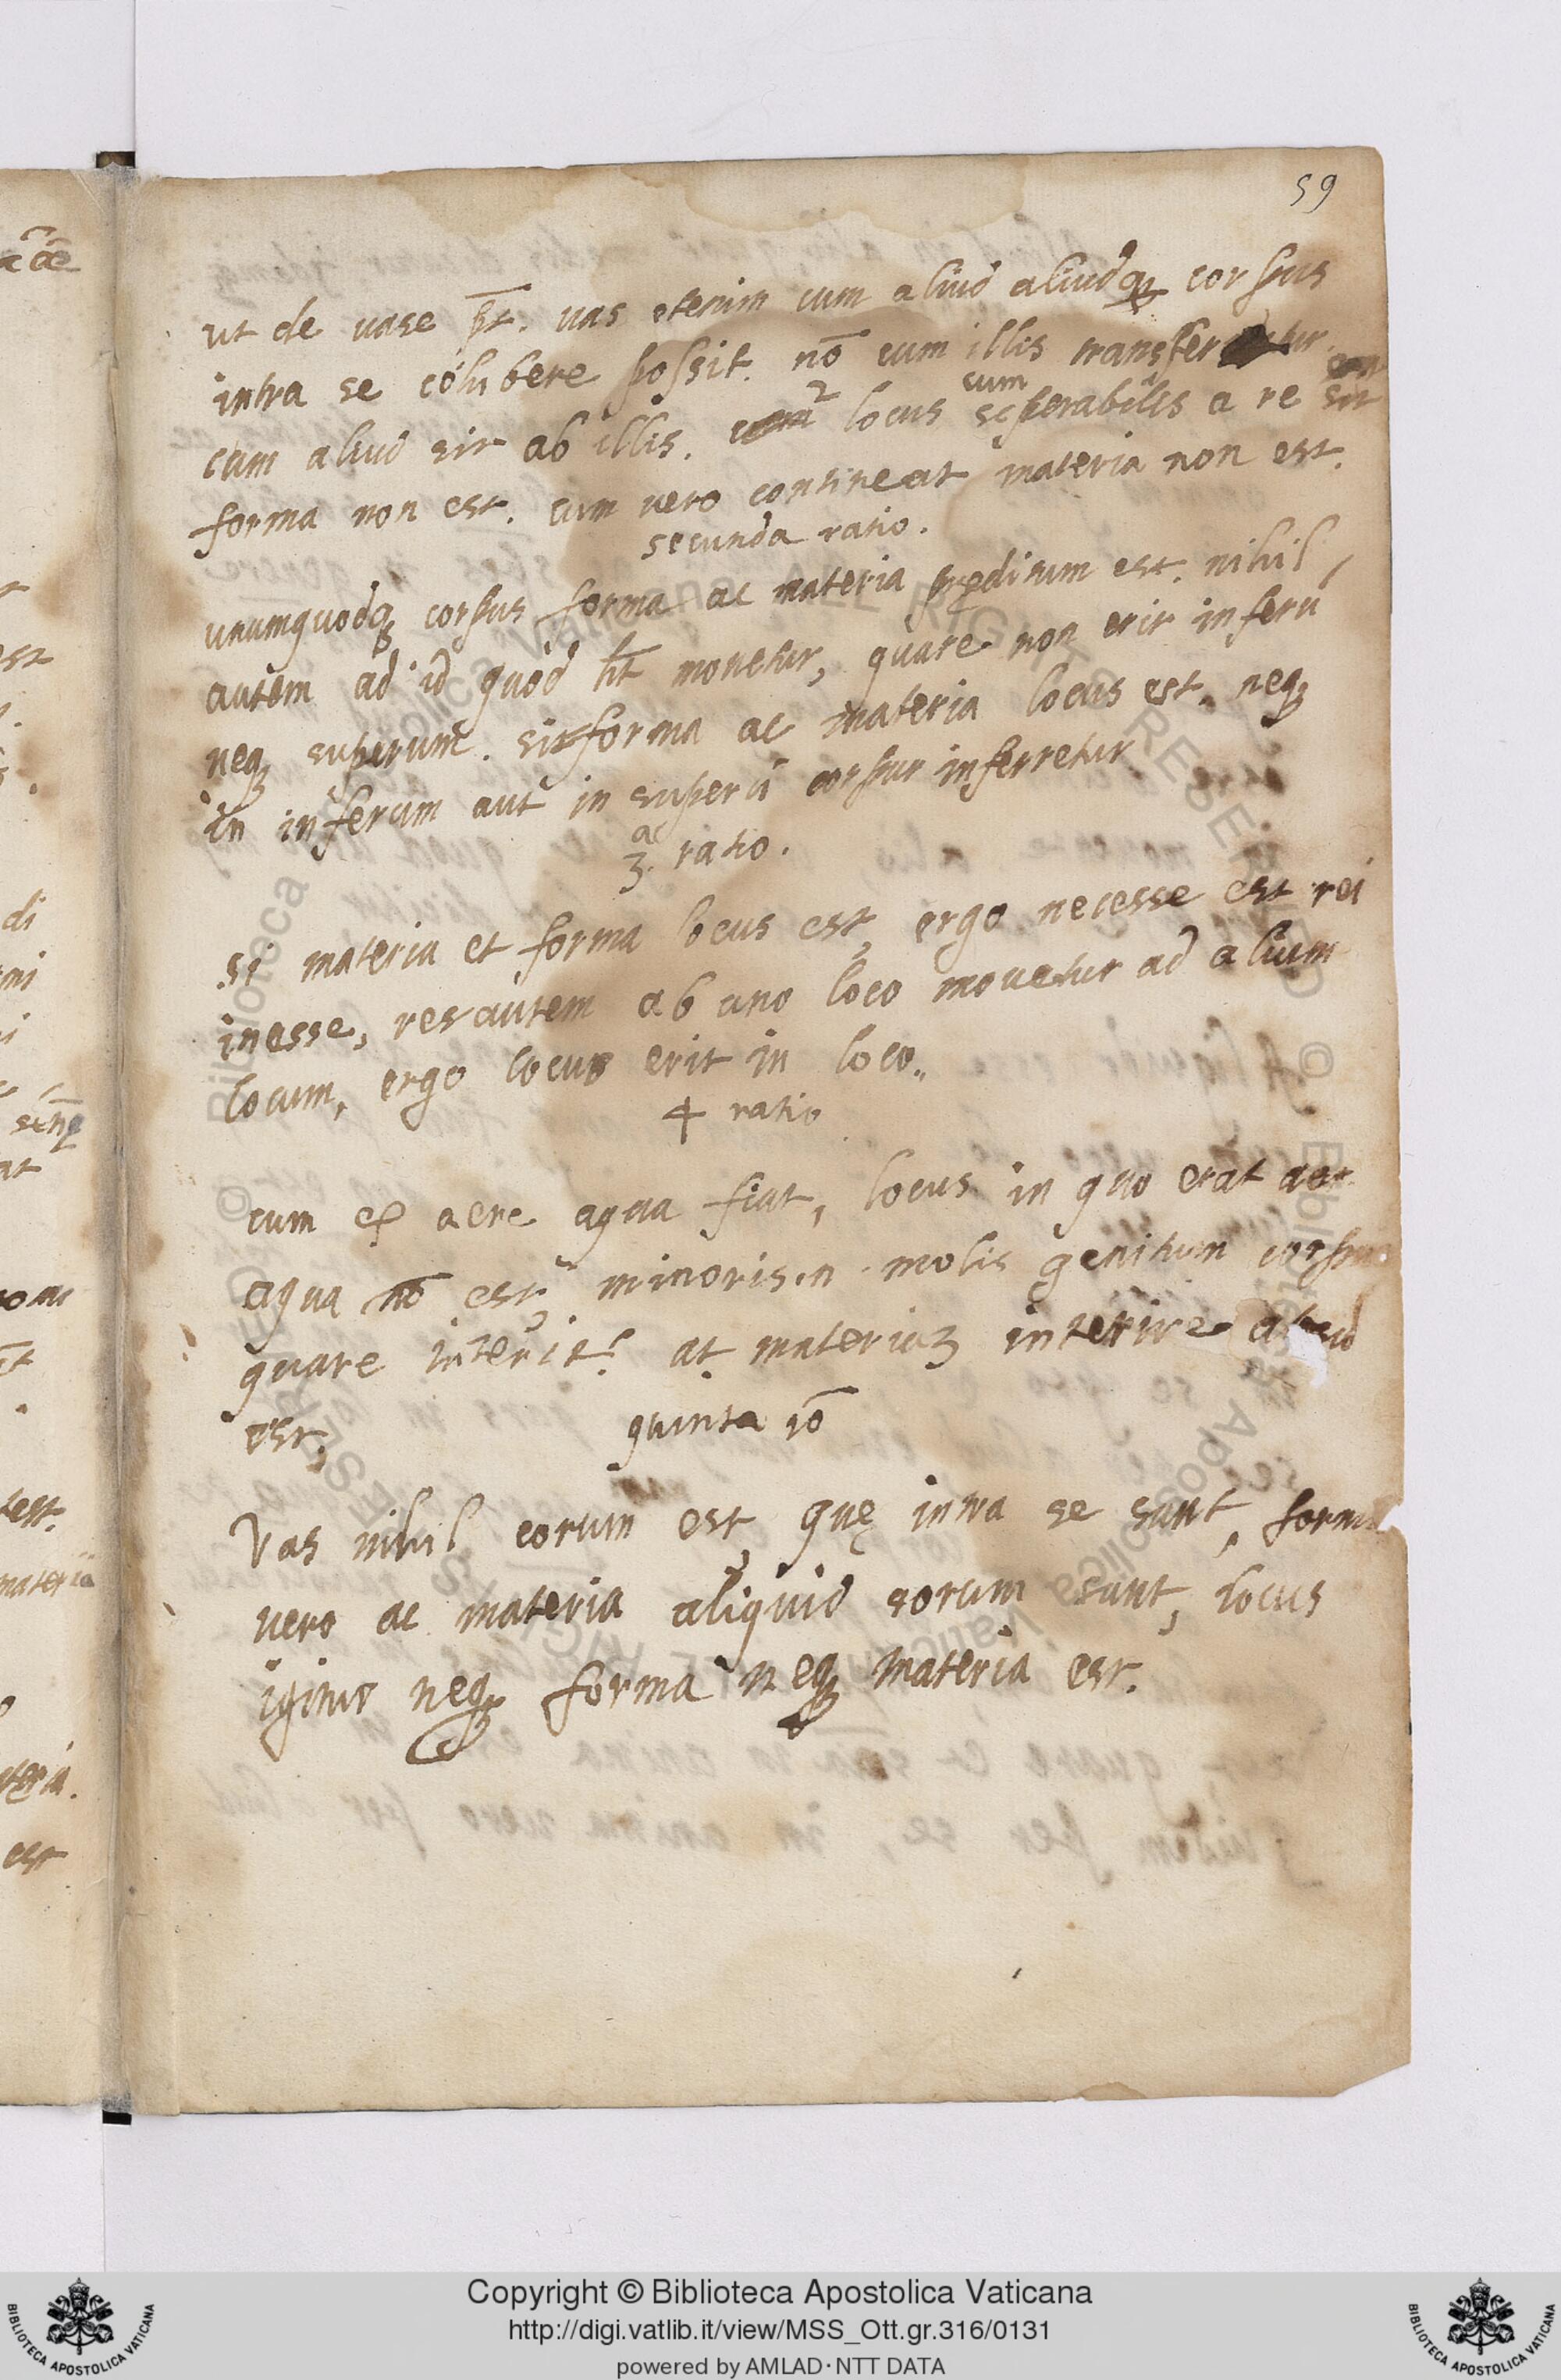 59
ut de uase p̄t. uas etenim cum aliud aliudq; corpus
intra se cohibere possit. nō cum illis transfer
cum aliud sit ab illis. locus cum seperabilis a re sit
forma non est. cum vero contineat materia non est.
secunda ratio.
unumquodq; corpus forma ac materia pręditum est. nihil
autem ad id quod ht̄ mouetur, quare non erit inferū
neq; superum. si forma ac materia locus est. neq;
in inferum aut in superū corpus inferretur
3.ᵃ ratio.
si materia et forma locus est, ergo necesse est rei
inesse, res autem ab uno loco mouetur ad alium
locum, ergo locus erit in loco.
4 ratio
cum ex aere aqua fiat, locus in quo erat aer
aqua nō est, minoris .n. molis genitum corpus
quare interit? at materiam interire
est.
quinta rō
Vas nihil eorum est, quę intra se sunt, forma
uero ac materia aliquid eorum sunt, locus
igitur neq; forma neq; materia est.
Copyright © Biblioteca Apostolica Vaticana
http://digi.vatlib.it/view/MSS_Ott.gr.316/0131
powered by AMLAD·NTT DATA